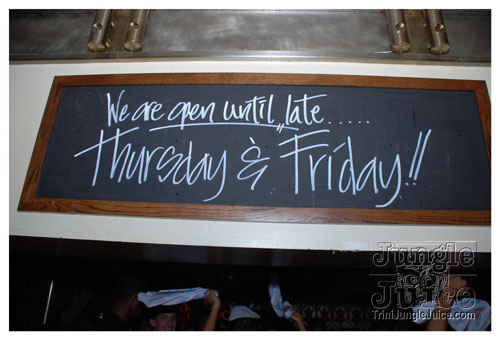 We are open until late.....
Thursday & Friday!!
Jungle
Juice
TriniJungleJuice.com